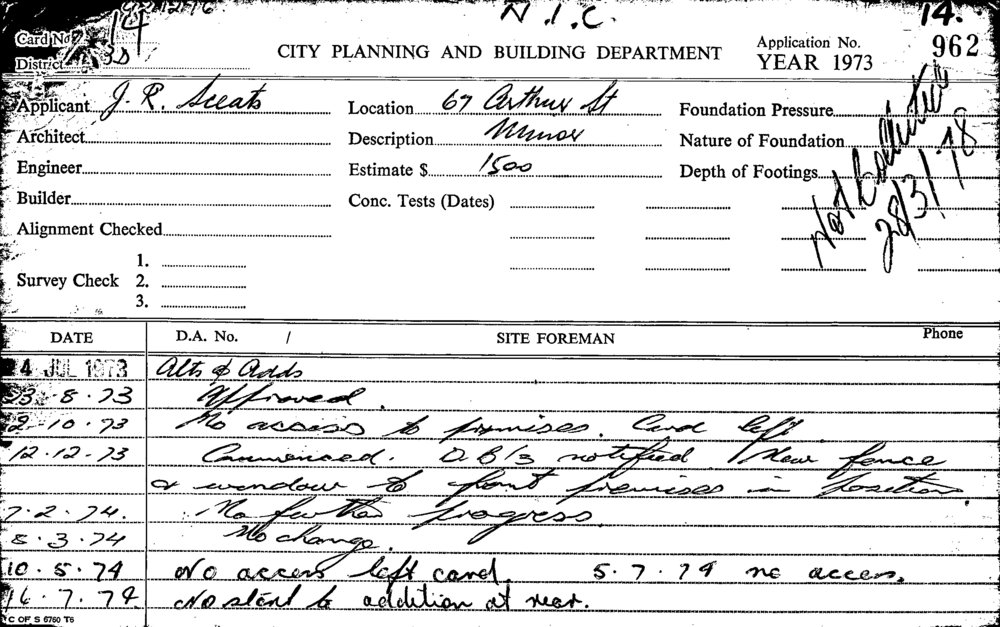 N.I.C. 14.
14
Card No
District 3D
CITY PLANNING AND BUILDING DEPARTMENT
Application No. 962
YEAR 1973
Applicant J. R. Sceats Location 67 Arthur St Foundation Pressure
Architect Description Minor Nature of Foundation
Engineer Estimate $ 1500 Depth of Footings
Builder Conc. Tests (Dates)
Not
28/3/78
Alignment Checked
Survey Check 1.
2.
3.
DATE D.A. No. / SITE FOREMAN Phone
4 JUL 1973 Alts & Adds
8.73 Approved.
10.73 No access to premises. Card left.
12.12.73 Commenced. D.B/s notified New fence
& window to front premises in position.
7.2.74. No further progress
8.3.74 No change.
10.5.74 No access left card. 5.7.74 no access.
16.7.74 No start to addition at rear.
C OF S 6760 T6